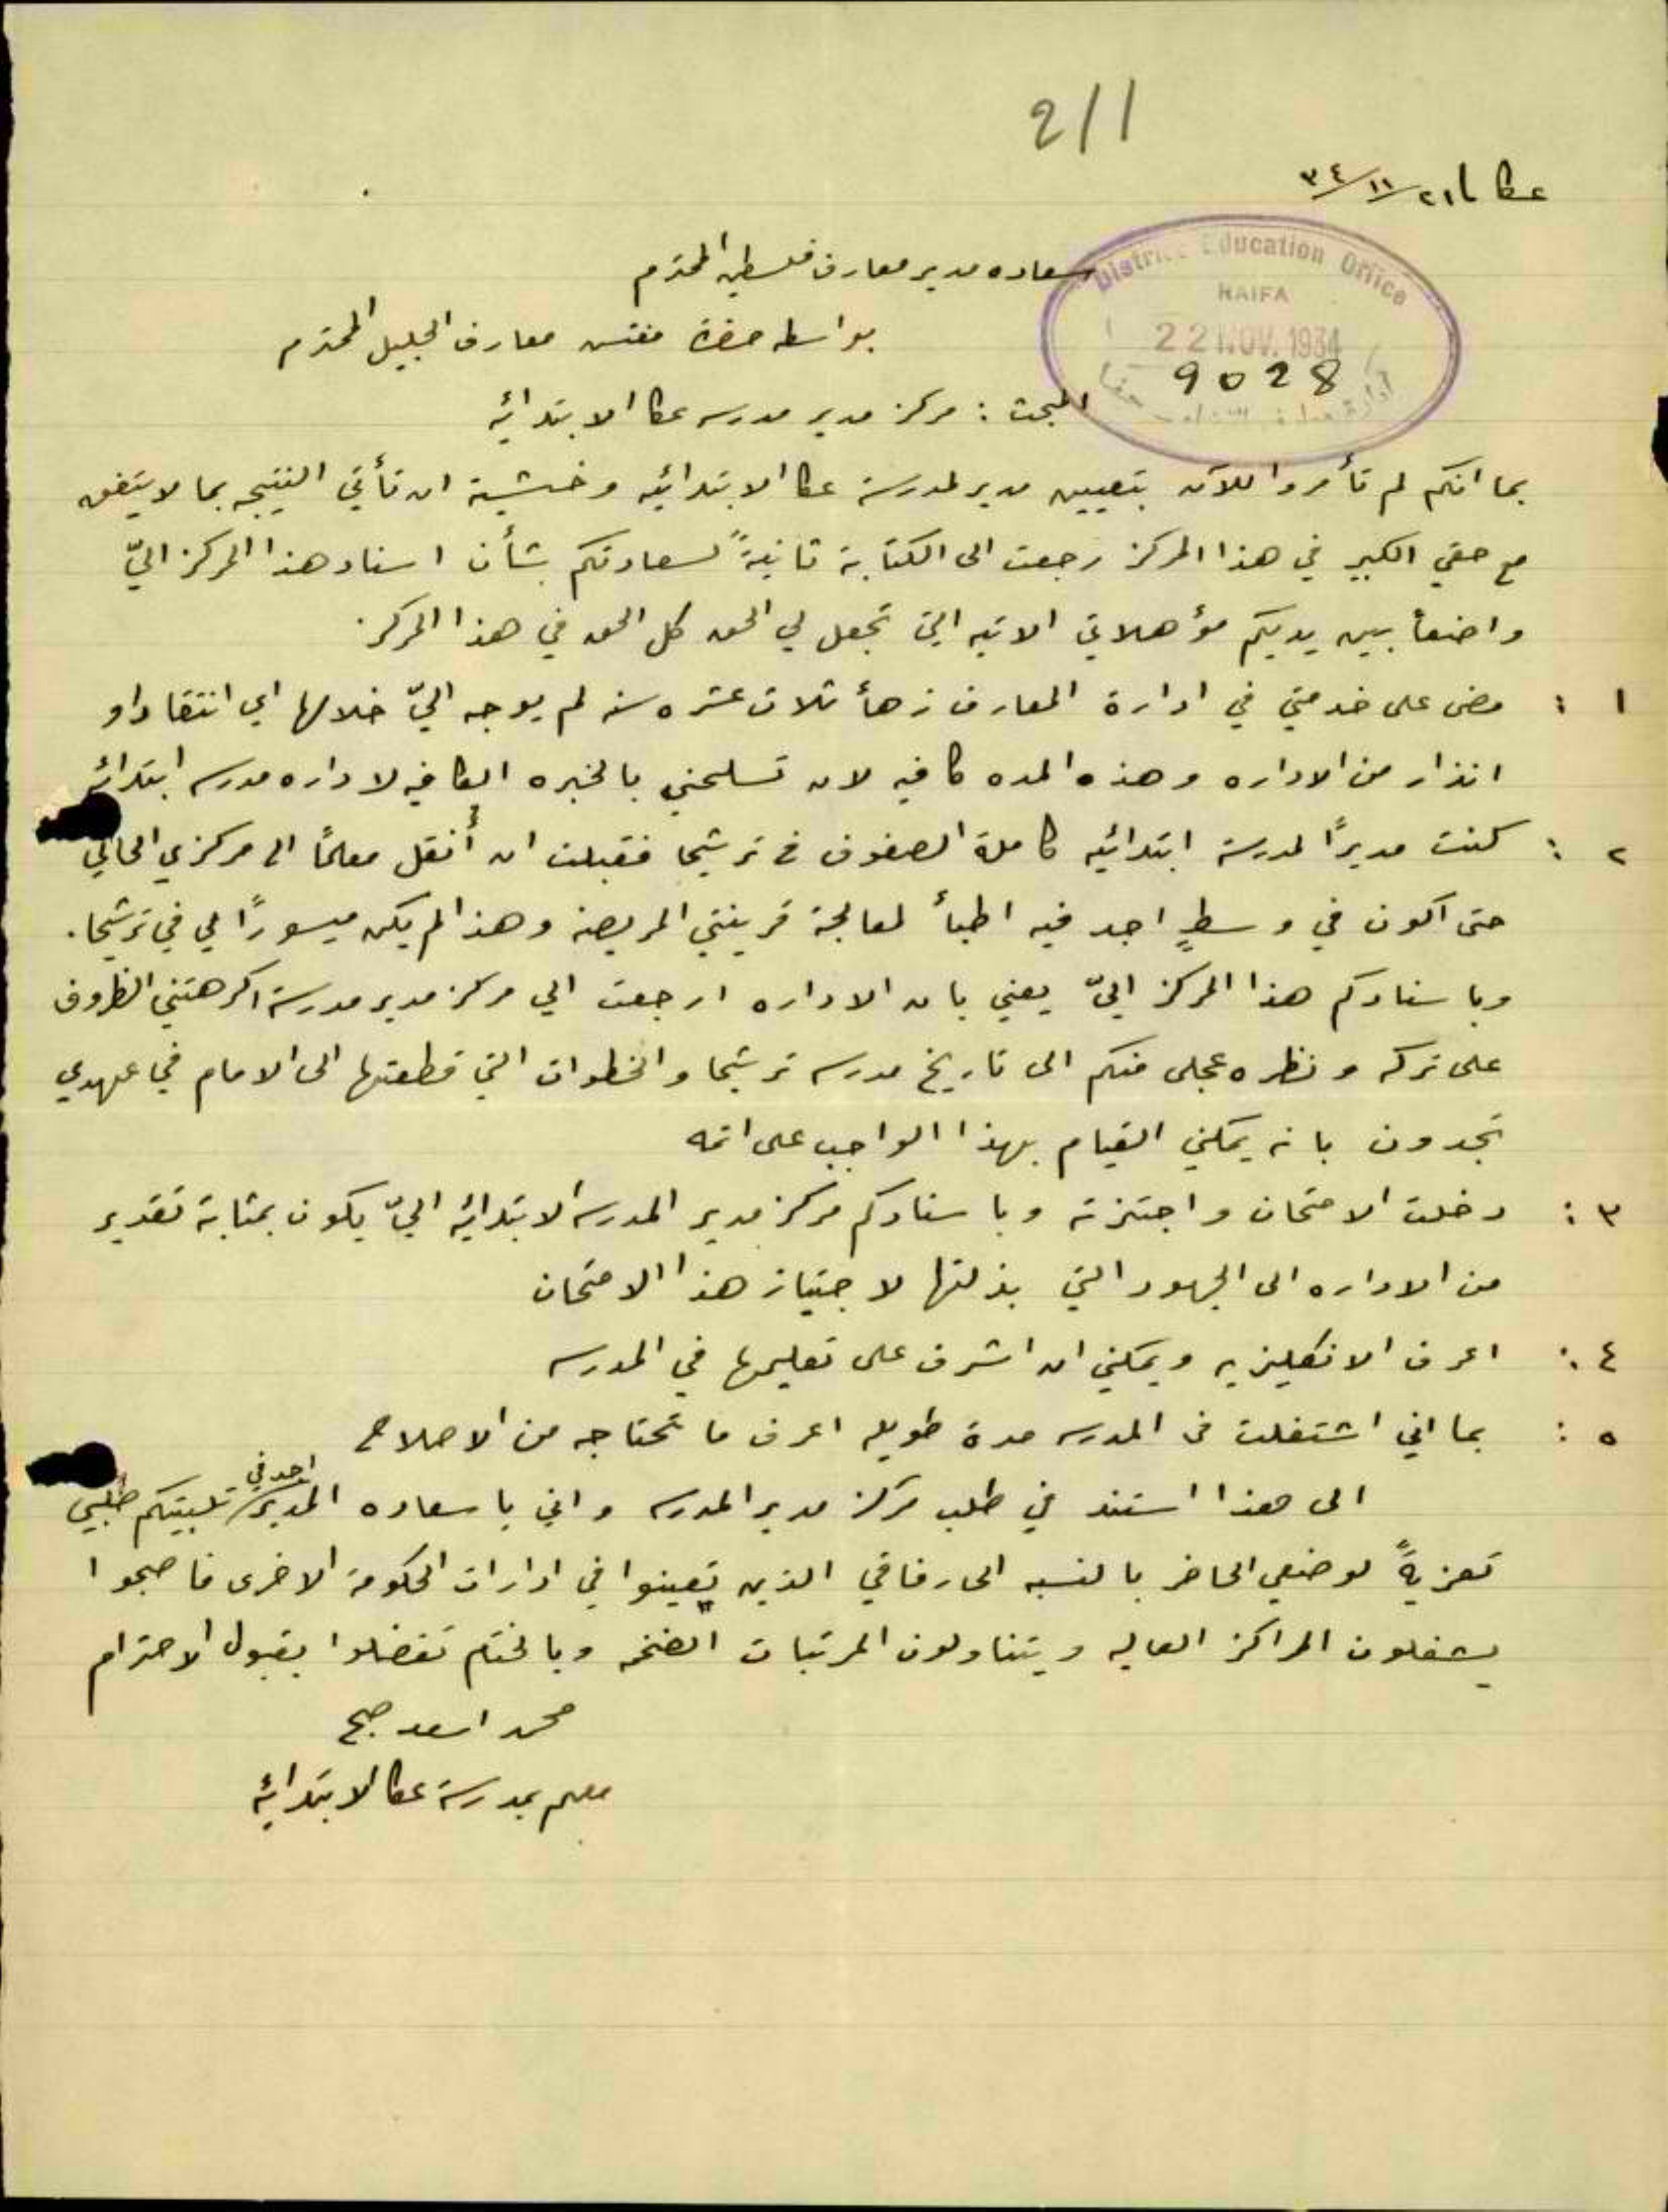 2/1
عكا في ٢١/١١/٣٤
District Education Office
HAIFA
22 NOV. 1934
9028
سعاده مدير معارف فلسطين المحترم
بواسطه حضرة مفتش معارف الجليل المحترم
المبحث : مركز مدير مدرسه عكا الابتدائيه
بما انكم لم تأمروا للآن بتعيين مدير لمدرسة عكا الابتدائيه وخشية ان تأتي النتيجه بما لا يتفق
مع حقي الكبير في هذا المركز رجعت الى الكتابة ثانيةً لسعادتكم بشأن اسناد هذا المركز اليّ
واضعاً بين يديكم مؤهلاتي الاتيه التي تجعل لي الحق كل الحق في هذا المركز.
١ : مضى على خدمتي في ادارة المعارف زهأ ثلاث عشره سنه لم يوجه اليّ خلالها اي انتقاد او
انذار من الاداره وهذه المده كافيه لان تسلحني بالخبره الكافيه لاداره مدرسه ابتدائيه
٢ : كنت مديرًا لمدرسة ابتدائيه كاملة الصفوف في ترشيحا فقبلت ان أُنقل معلمًا الى مركزي الحالي
حتى اكون في وسطٍ اجد فيه اطبأ لمعالجة قرينتي المريضه وهذا لم يكن ميسورًا لي في ترشيحا.
وباسنادكم هذا المركز اليّ يعني بان الاداره ارجعت الي مركز مدير مدرسة اكرهتني الظروف
على تركه ونظره عجلى منكم الى تاريخ مدرسه ترشيحا والخطوات التي قطعتها الى الامام في عهدي
تجدون بانه يمكنني القيام بهذا الواجب على اتمه
٣ : دخلت الامتحان واجتزته وباسنادكم مركز مدير المدرسه الابتدائيه اليّ يكون بمثابة تقدير
من الاداره الى الجهود التي بذلتها لاجتياز هذا الامتحان
٤ : اعرف الانكليزيه ويمكنني ان اشرف على تعليمها في المدرسه
٥ : بما اني اشتغلت في المدرسه مدة طويله اعرف ما تحتاجه من الاصلاح
الى هذا استند في طلب مركز مدير المدرسه واني يا سعاده المدير اجد في تلبيتكم طلبي
تعزيةً لوضعي الحاضر بالنسبه الى رفاقي الذين تعينوا في ادارات الحكومة الاخرى فاصبحوا
يشغلون المراكز العاليه ويتناولون المرتبات الضخمه وبالختام تفضلوا بقبول الاحترام
محمد اسعد صبح
معلم بمدرسة عكا الابتدائيه